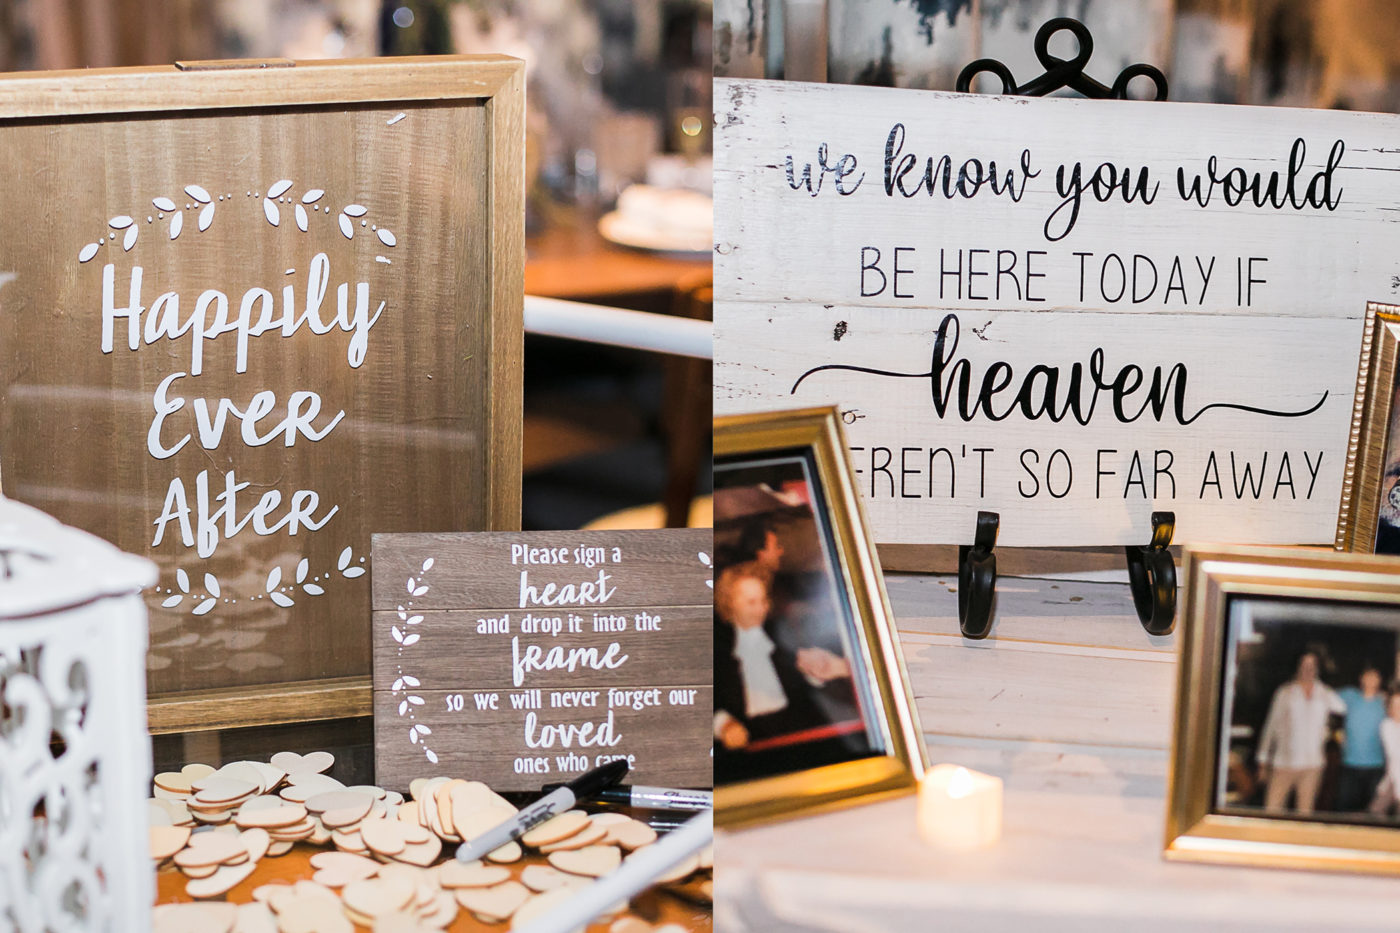 Happily
Ever
After
Please sign a
heart
and drop it into the
frame
so we will never forget our
loved
ones who came
we know you would
BE HERE TODAY IF
heaven
EREN'T SO FAR AWAY